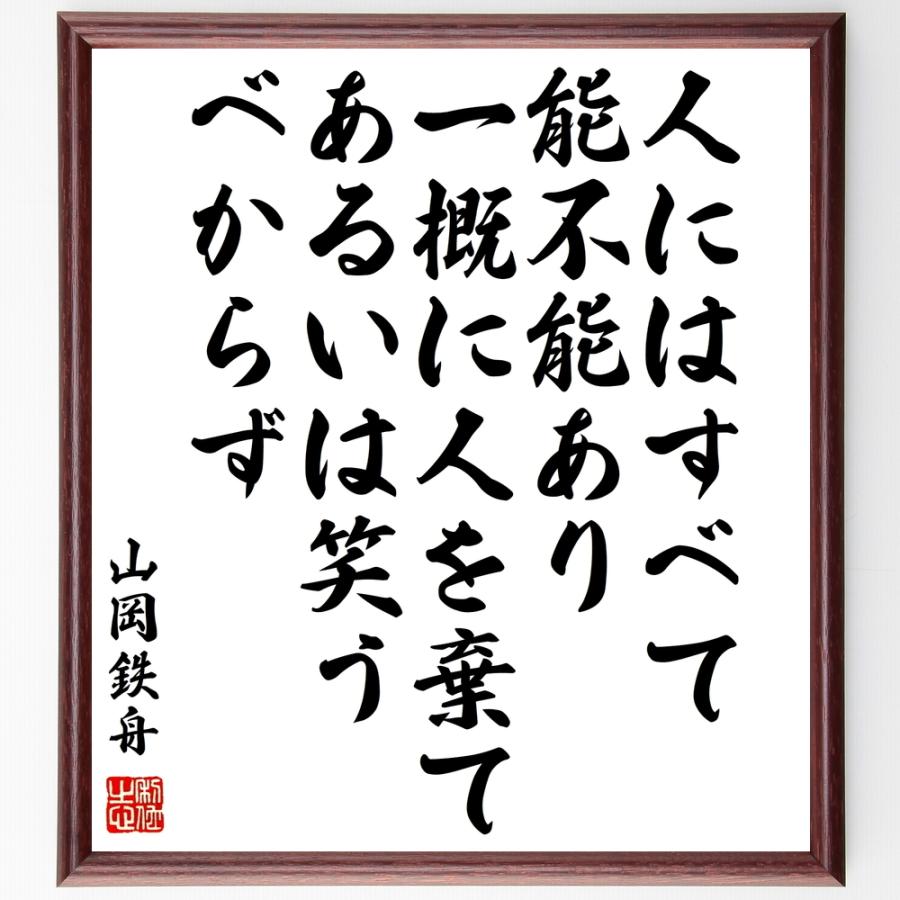 人にはすべて
能不能あり
一概に人を棄て
あるいは笑う
べからず
山岡鉄舟